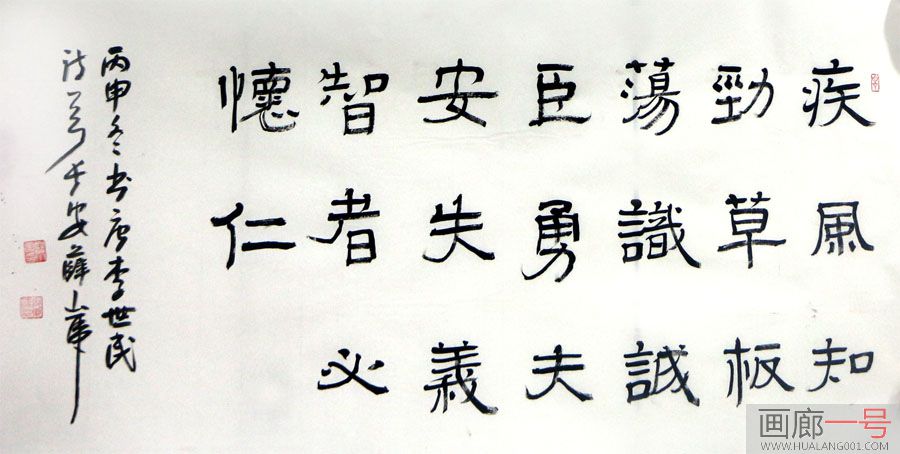 疾風知
勁草板
蕩識誠
臣勇夫
安失義
智者必
懷仁
丙申冬书唐李世民
诗 长安薛
画廊一号
WWW.HUALANG001.COM